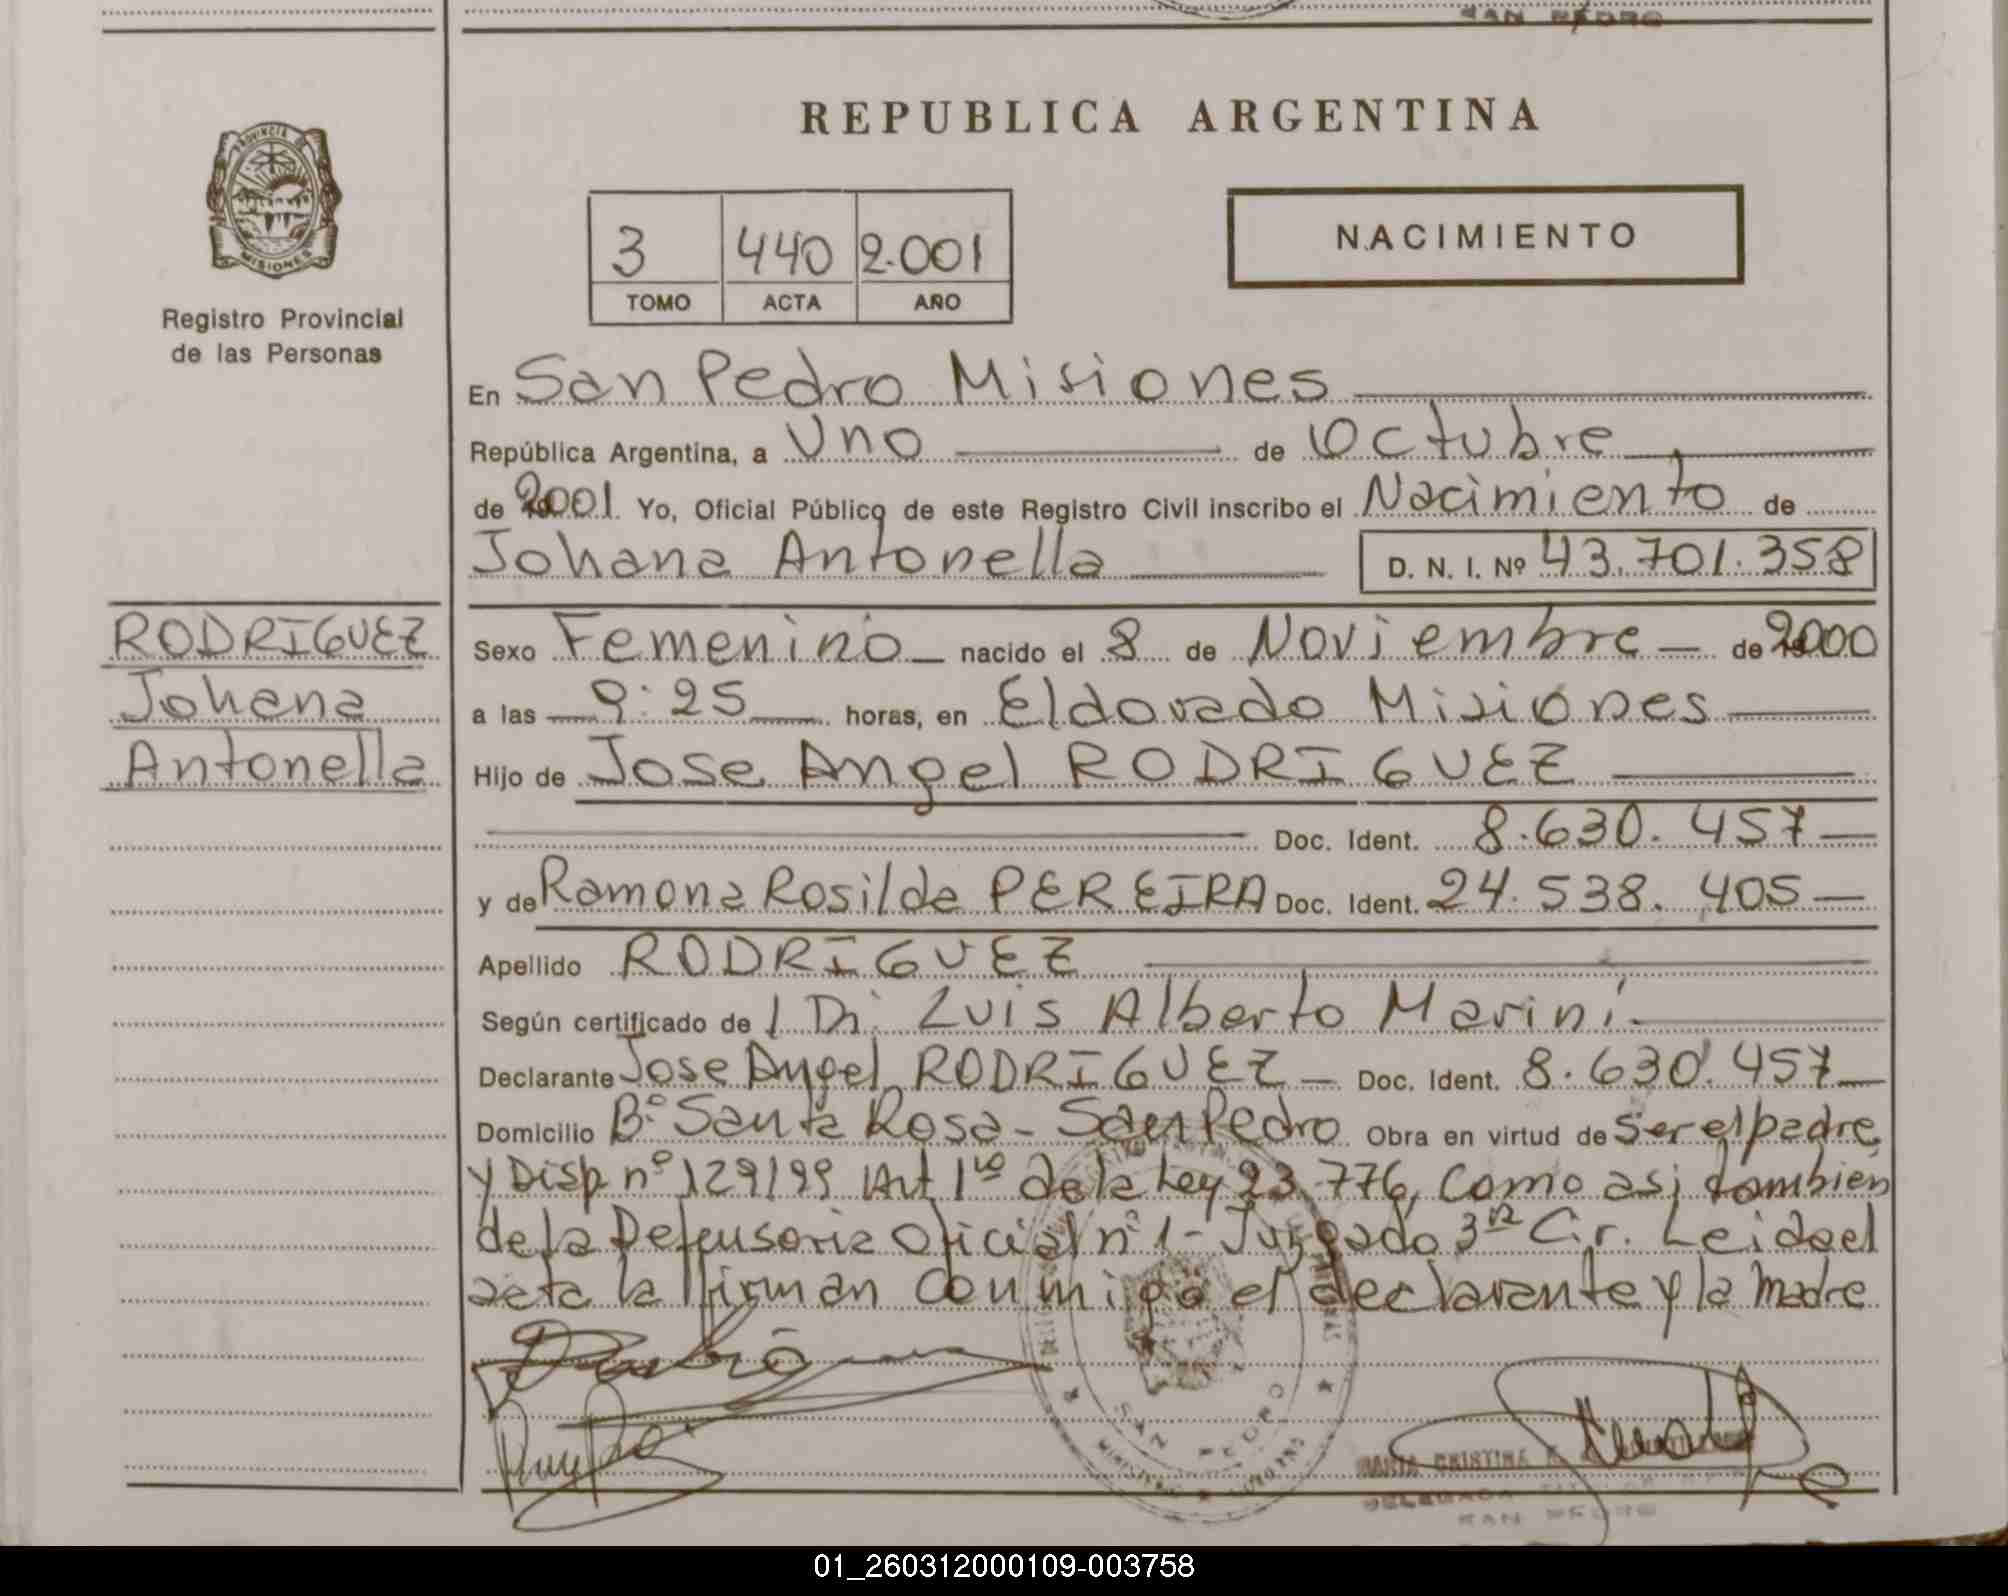 SAN PEDRO
REPUBLICA ARGENTINA
PROVINCIA DE
MISIONES
Registro Provincial
de las Personas
3 440 2.001
TOMO ACTA AÑO
NACIMIENTO
En San Pedro Misiones
República Argentina, a Uno de Octubre
de 2001 Yo, Oficial Público de este Registro Civil inscribo el Nacimiento de
Johana Antonella D. N. I. Nº 43.701.358
RODRIGUEZ
Johana
Antonella
Sexo Femenino nacido el 8 de Noviembre de 2000
a las 9:25 horas, en Eldorado Misiones
Hijo de Jose Angel RODRIGUEZ
Doc. Ident. 8.630.457
y de Ramona Rosilda PEREIRA Doc. Ident. 24.538.405
Apellido RODRIGUEZ
Según certificado de / Dr. Luis Alberto Marini
Declarante Jose Angel RODRIGUEZ Doc. Ident. 8.630.457
Domicilio Bº Santa Rosa - San Pedro Obra en virtud de ser el padre
y Disp nº 129/99 Art 1º de la Ley 23.776, como asi tambien
de la Defensoria Oficial nº 1 - Juzgado 3ra C.r. Leida el
acta la firman conmigo el declarante y la madre
SAN PEDRO
MARIA CRISTINA
DELEGADA TITULAR
SAN PEDRO
01_260312000109-003758